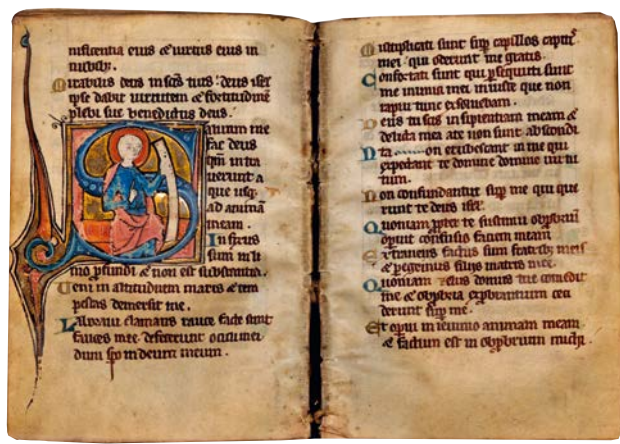 nificentia eius & uirtus eius in
nubib;.
Mirabilis deus in scis suis: deus isrl
ipse dabit uirtutem & fortitudinē
plebi sue benedictus deus.
Saluum me
fac deus
qm intra
uerunt a
que usq;
ad animā
meam.
Infixus
sum in li
mo pfundi & non est substantia.
Ueni in altitudinem maris & tem
pestas demersit me.
Laboraui clamans rauce facte sunt
fauces mee: defecerunt oculi mei
dum spo in deum meum.
Multiplicati sunt sup capillos capitis
mei qui oderunt me gratis.
Confortati sunt qui psequuti sunt
me inimici mei iniuste que non
rapui tunc exsoluebam.
Deus tu scis insipientiam meam &
delicta mea a te non sunt abscondi
ta. Non erubescant in me qui
expectant te domine domine uirtu
tum.
Non confundantur sup me qui que
runt te deus isrl.
Quoniam ppter te sustinui obpbriū
opuit confusio faciem meam.
Extraneus factus sum fratrib; meis
& pegrinus filiis matris mee.
Quoniam zelus domus tue comedit
me & obpbria expbrantium ceci
derunt sup me.
Et opui in ieiunio animam meam
& factum est in obpbrium michi.